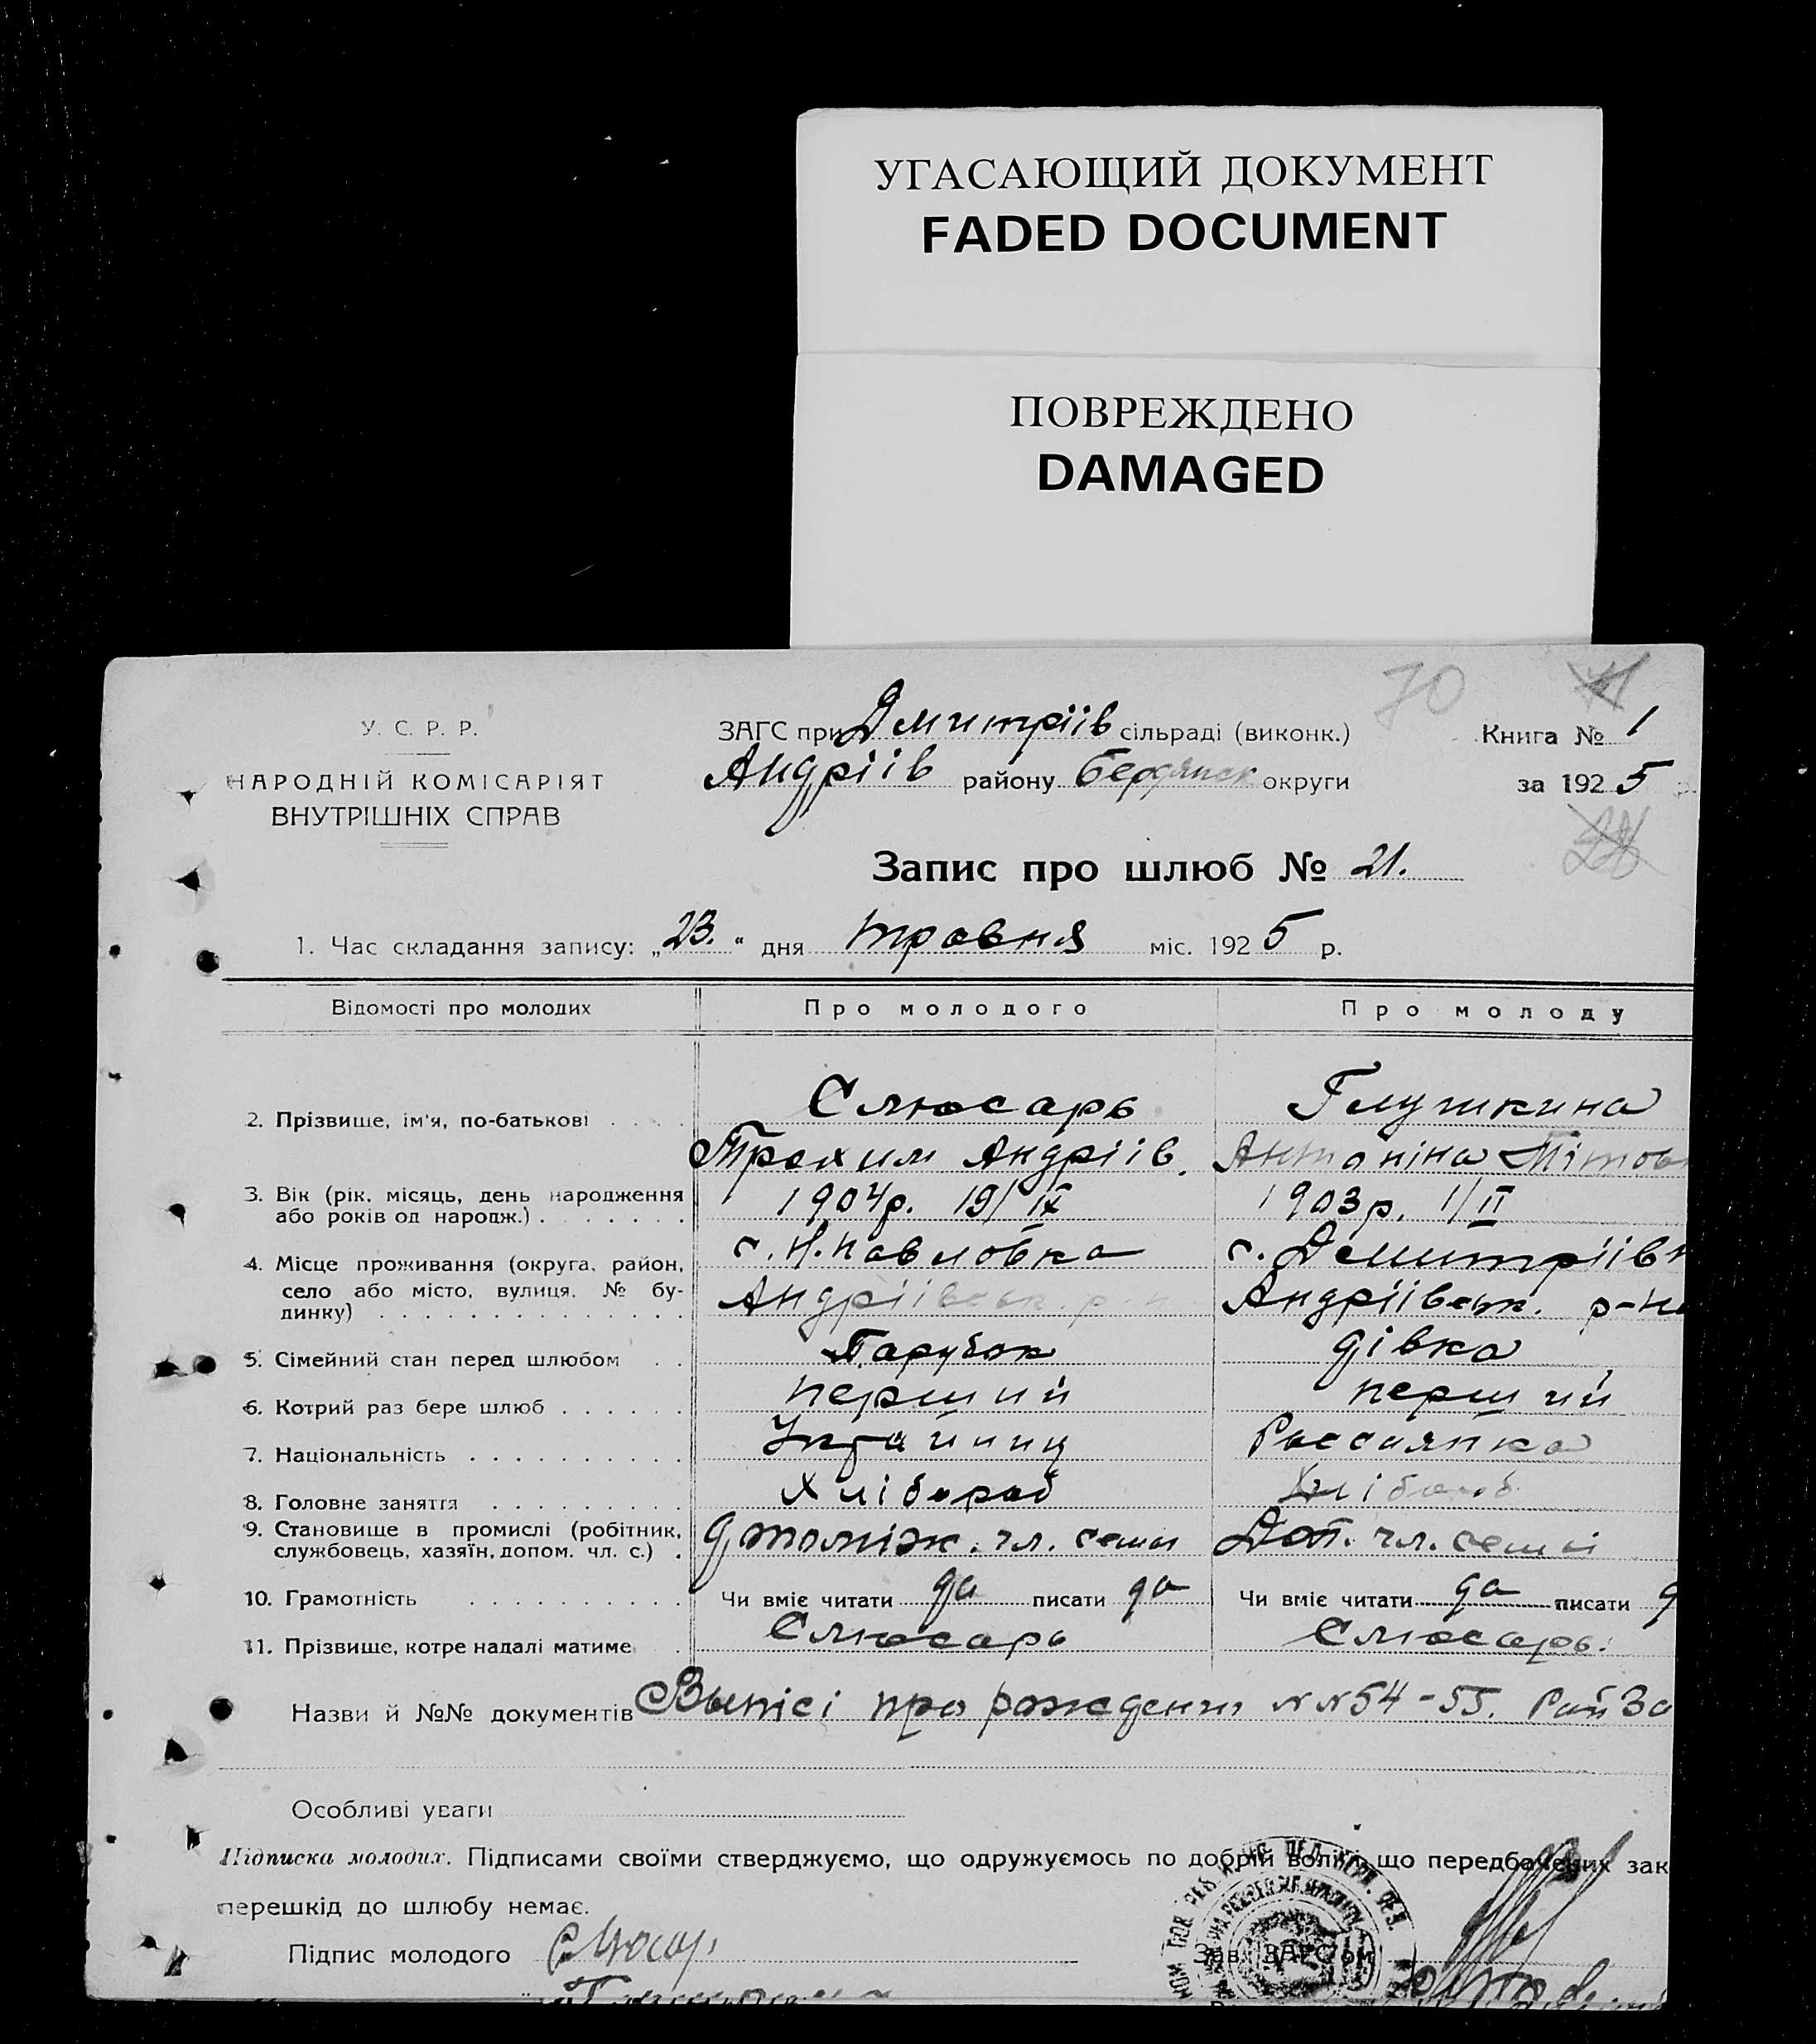 УГАСАЮЩИЙ ДОКУМЕНТ
FADED DOCUMENT
ПОВРЕЖДЕНО
DAMAGED
70
У. С. Р. Р.
НАРОДНІЙ КОМІСАРІЯТ
ВНУТРІШНІХ СПРАВ
ЗАГС при Дмитріів сільраді (виконк.)
Андріів району Бердянск округи
Книга № 1
за 1925 р.
Запис про шлюб № 21.
1. Час складання запису: „23.“ дня травня міс. 1925 р.
Відомості про молодих Про молодого Про молоду
2. Прізвище, ім'я, по-батькові Слюсарь Глушкина
Трохим Андріів. Антоніна Тітов
3. Вік (рік, місяць, день народження або років од народж.) 1904р. 19/IX 1903р. 1/II
4. Місце проживання (округа, район, село або місто, вулиця, № будинку) с. Н.Павловка с. Дмитріівк
Андріівськ. р-н Андріівськ. р-н
5. Сімейний стан перед шлюбом Парубок дівка
6. Котрий раз бере шлюб перший перший
7. Національність Українец Россиянка
8. Головне заняття Хлібороб Хлібороб
9. Становище в промислі (робітник, службовець, хазяїн, допом. чл. с.) чл. семьи Доп. чл. семьи
10. Грамотність Чи вміє читати да писати да Чи вміє читати да писати д
11. Прізвище, котре надалі матиме Слюсарь Слюсарь.
Назви й №№ документів Выпісі про рождения NN54-55. Рай За
Особливі уваги
Підписка молодих. Підписами своїми стверджуємо, що одружуємось по добрій волі й що передбачених зак
перешкід до шлюбу немає.
Підпис молодого Слюсар
Зав. ЗАГС'ом